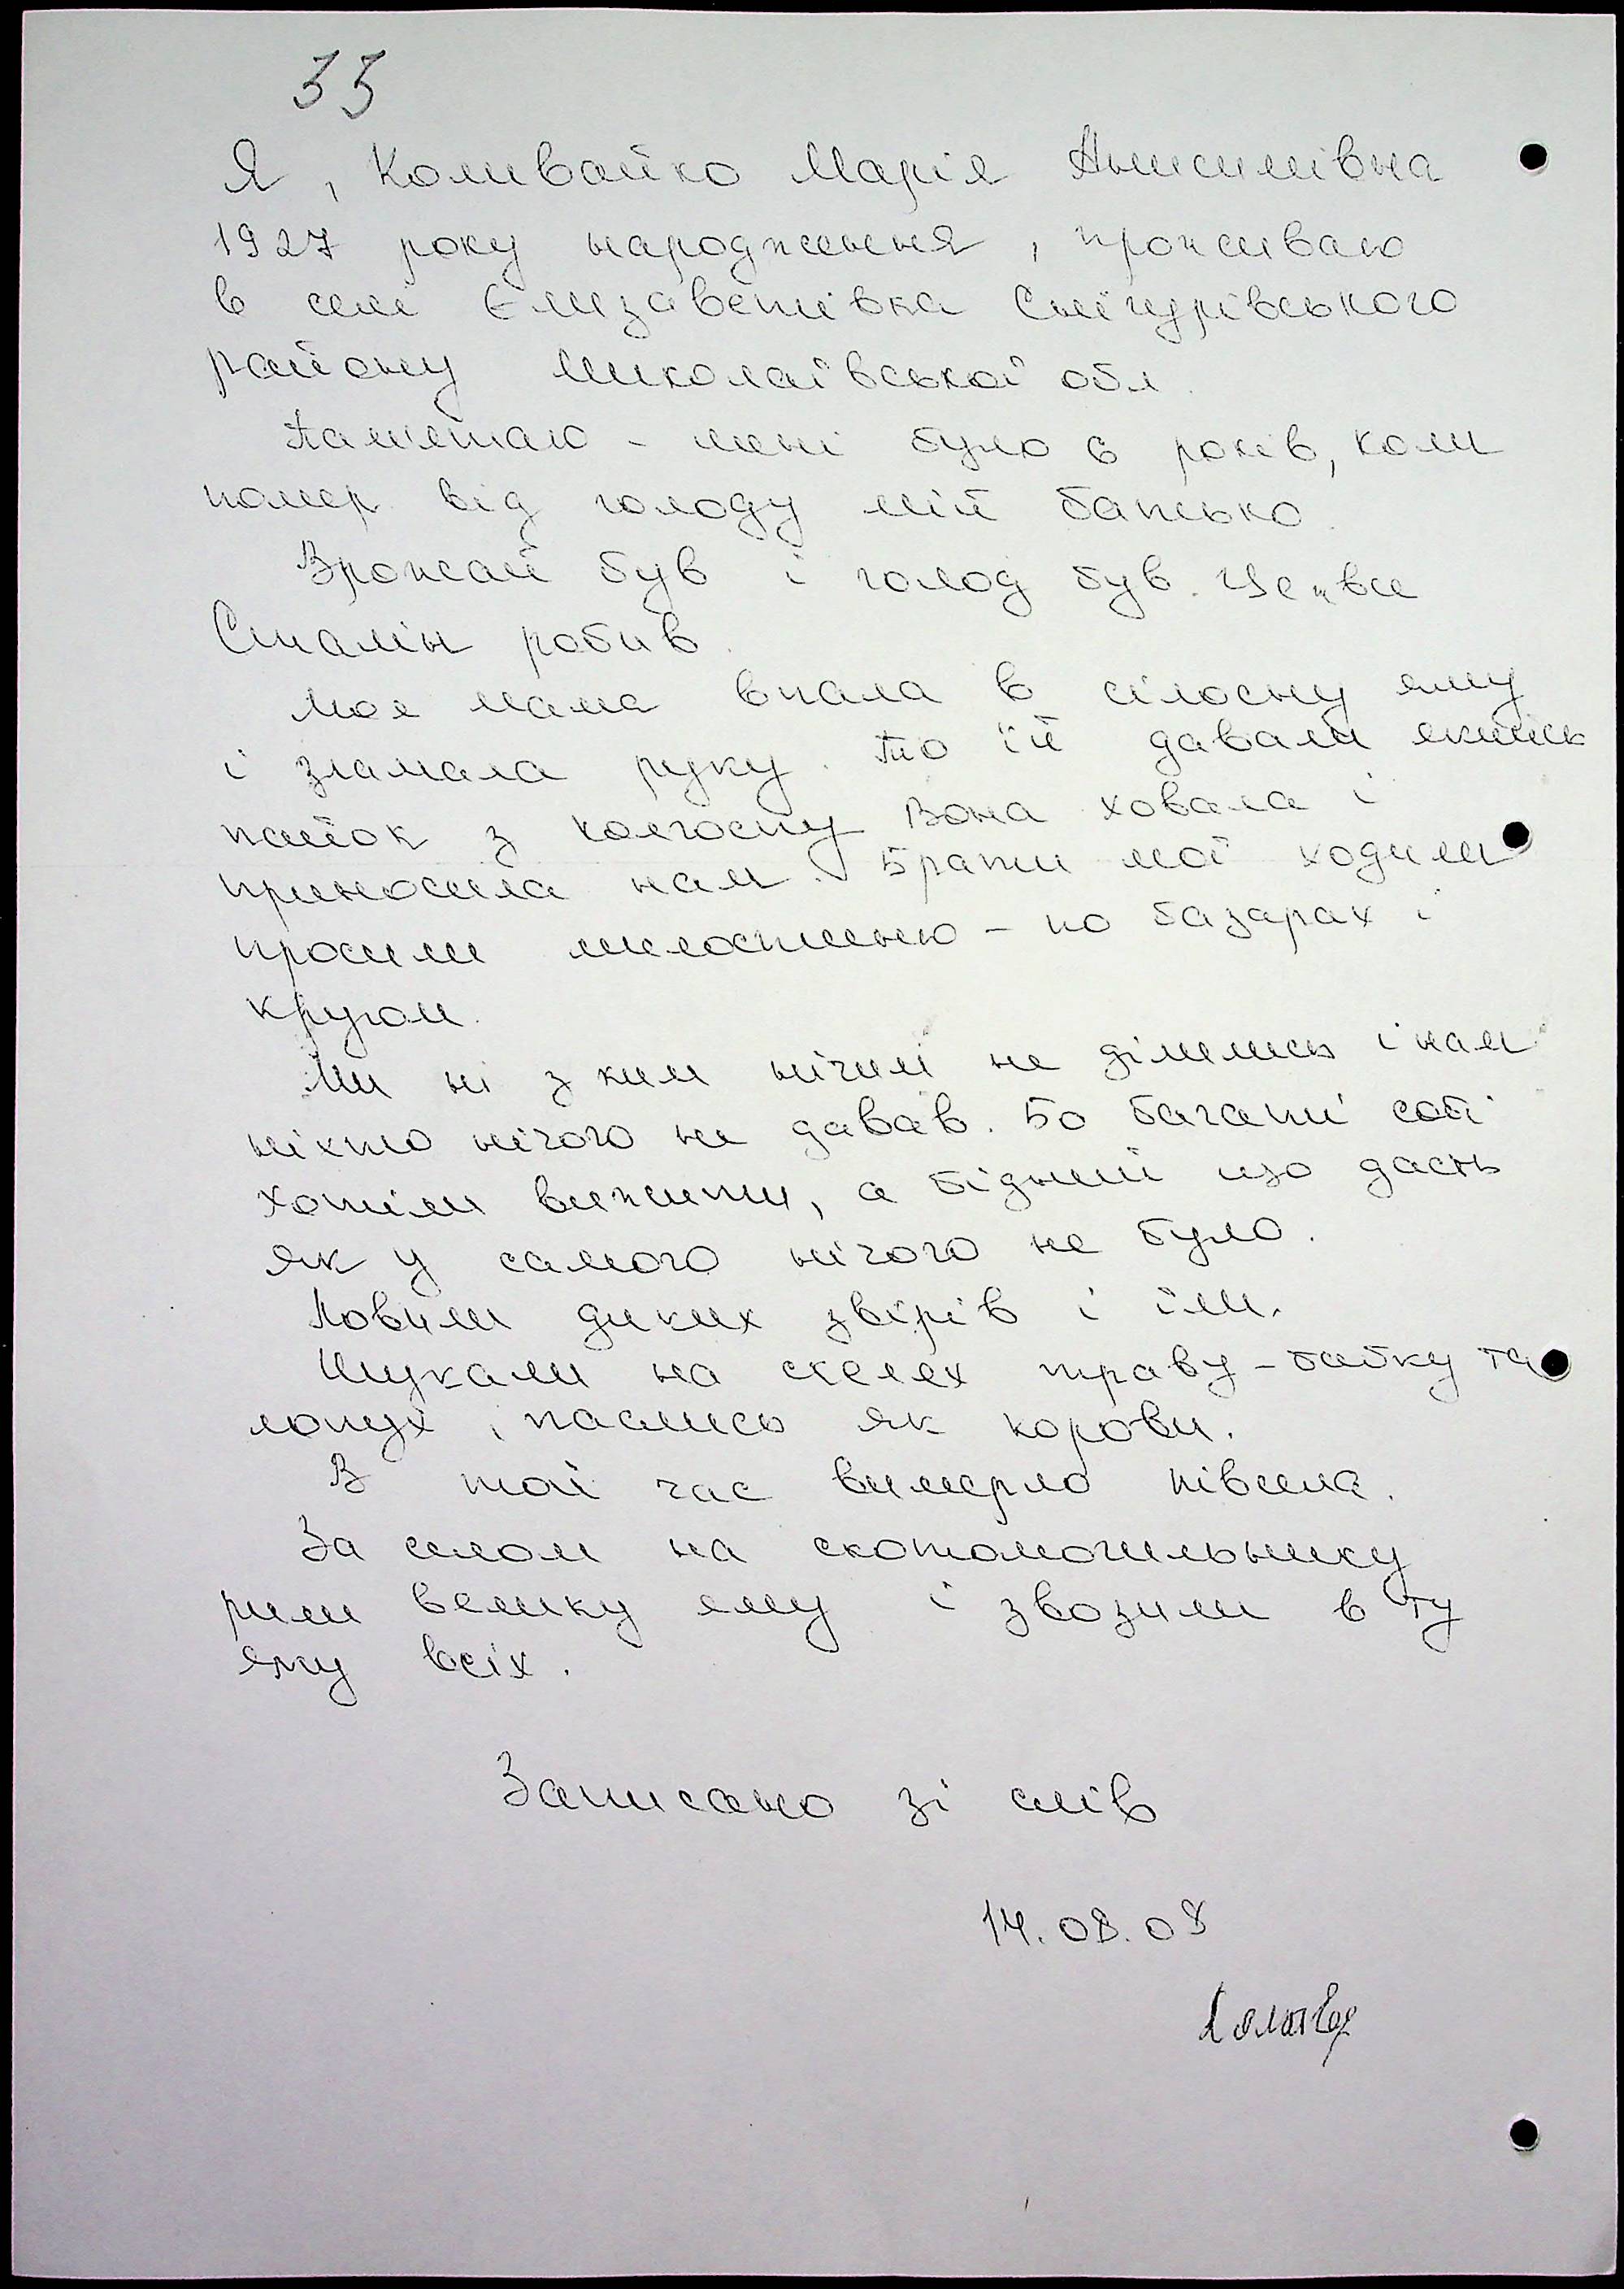 33
Я, Коливайко Марія Анисимівна
1927 року народження, проживаю
в селі Єлизаветівка Снігурівського
району Миколаївської обл.
Пам'ятаю - мені було 6 років, коли
помер від голоду мій батько.
Врожай був і голод був. Це все
Сталін робив.
Моя мама впала в сілосну яму
і зламала руку. То їй давали якийсь
пайок з колгоспу. Вона ховала і
приносила нам. Брати мої ходили
просили милостиню - по базарах і
кругом.
Ми ні з ким нічим не ділились і нам
ніхто нічого не давав. Бо багаті собі
хотіли вижити, а бідний що дасть
як у самого нічого не було.
Ловили диких звірів і їли.
Шукали на скелях траву - бабку та
лопух, паслись як корови.
В той час вимерло півсела.
За селом на скотомогильнику
рили велику яму і звозили в ту
яму всіх.
Записано зі слів
14.08.08